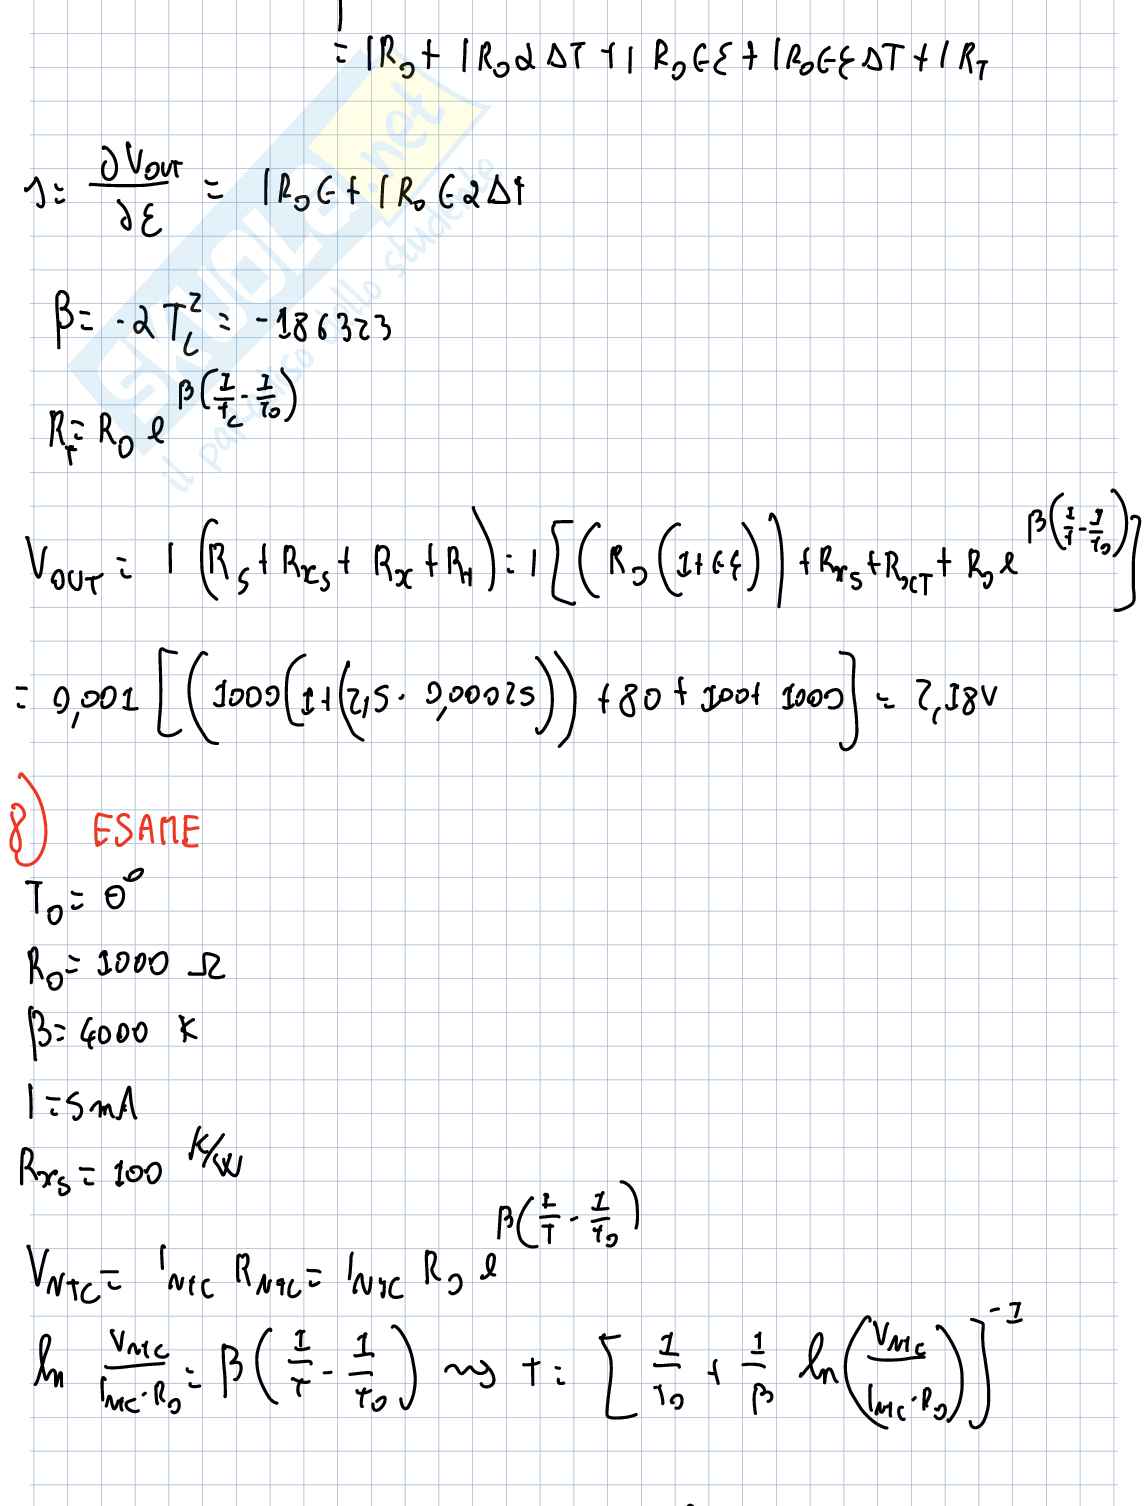 = I R₀ + I R₀ α ΔT + I R₀ G ε + I R₀ G ε ΔT + I R_T
s = ∂V_OUT / ∂ε = I R₀ G + I R₀ G α Δt
β = -α T_c² = -186323
R_T = R₀ e^{β(1/T_c - 1/T₀)}
V_OUT = I (R_S + R_xs + R_x + R_t) = I [(R₀ (1 + Gε)) + R_xs + R_xT + R₀ e^{β(1/T - 1/T₀)}]
= 0,001 [(1000 (1 + (2,5 · 0,00025))) + 80 + 100 + 1000] = 2,18V
8) ESAME
T₀ = 0°
R₀ = 1000 Ω
β = 4000 K
I = 5 mA
R_xs = 100 K/W
V_NTC = I_NTC R_NTC = I_NTC R₀ e^{β(1/T - 1/T₀)}
ln V_NTC / (I_NTC · R₀) = β (1/T - 1/T₀) ⇝ T = [1/T₀ + 1/β ln (V_NTC / (I_NTC · R₀))]^{-1}
SKUOLA.net